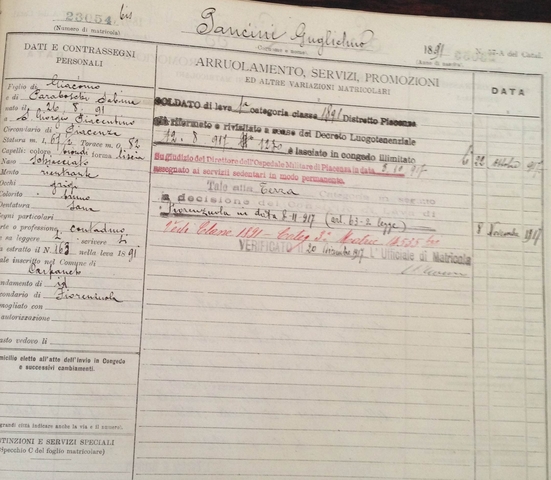 23654 bis
(Numero di matricola)
Pancini Guglielmo
(Cognome e nome)
1891
(Anno di nascita)
N. 57-A del Catal.
DATI E CONTRASSEGNI
PERSONALI
Figlio di Giacomo
e di
nato il 26. 8. 91
a S. Giorgio Piacentino
Circondario di Piacenza
Statura m. 1, Torace m. 0, 82
Capelli: colore biondi forma lisci
Naso
Mento
Occhi grigi
Colorito bruno
Dentatura sana
Segni particolari
Arte o professione contadino
Se sa leggere scrivere
Ha estratto il N. 163 nella leva 1891
quale inscritto nel Comune di
Carpaneto
Mandamento di id
Circondario di Fiorenzuola
Ammogliato con
autorizzazione
Rimasto vedovo li
Domicilio eletto all'atto dell'invio in Congedo
e successivi cambiamenti.
grandi città indicare anche la via e il numero.
DISTINZIONI E SERVIZI SPECIALI
(Specchio C del foglio matricolare)
ARRUOLAMENTO, SERVIZI, PROMOZIONI
ED ALTRE VARIAZIONI MATRICOLARI
DATA
SOLDATO di leva 1a categoria classe 1891 Distretto Piacenza
già riformato e rivisitato a senso del Decreto Luogotenenziale
12. 8. 917 N° 1270 è lasciato in congedo illimitato
li 22 ottobre 917
Su giudizio del Direttore dell'Ospedale Militare di Piacenza in data 3. 10. 917
assegnato ai servizi sedentari in modo permanente.
Tale alla terza
a decisione del
Fiorenzuola in data 8-11-917 (art. 63-2 legge)
8 Novembre 1917
Vedi Classe 1891 - Categ. 3a
VERIFICATO il 20 Novembre 917 L'Ufficiale di Matricola